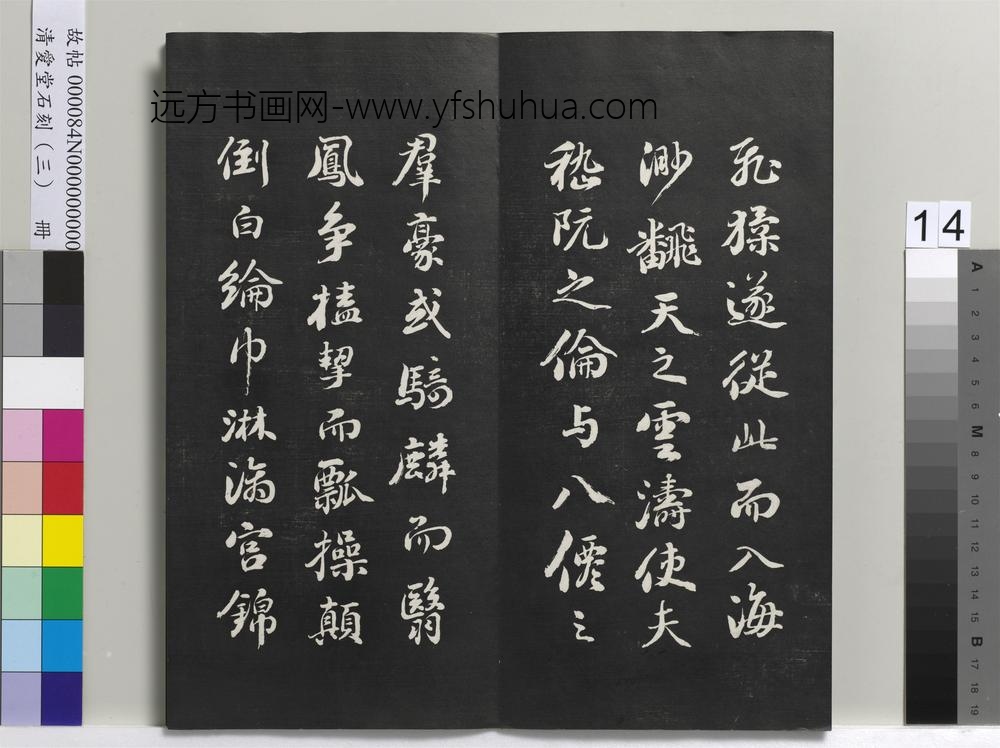 飛猱遂從此而入海
渺飜天之雲濤使夫
嵇阮之倫与八僊之
羣豪或騎麟而翳
鳳争榼挈而瓢操顛
倒白綸巾淋漓宮錦
远方书画网-www.yfshuhua.com
故帖 000084N000000000
清愛堂石刻（三） 冊
14
A 1 2 3 4 5 6 M 8 9 10 11 12 13 14 15 B 17 18 19